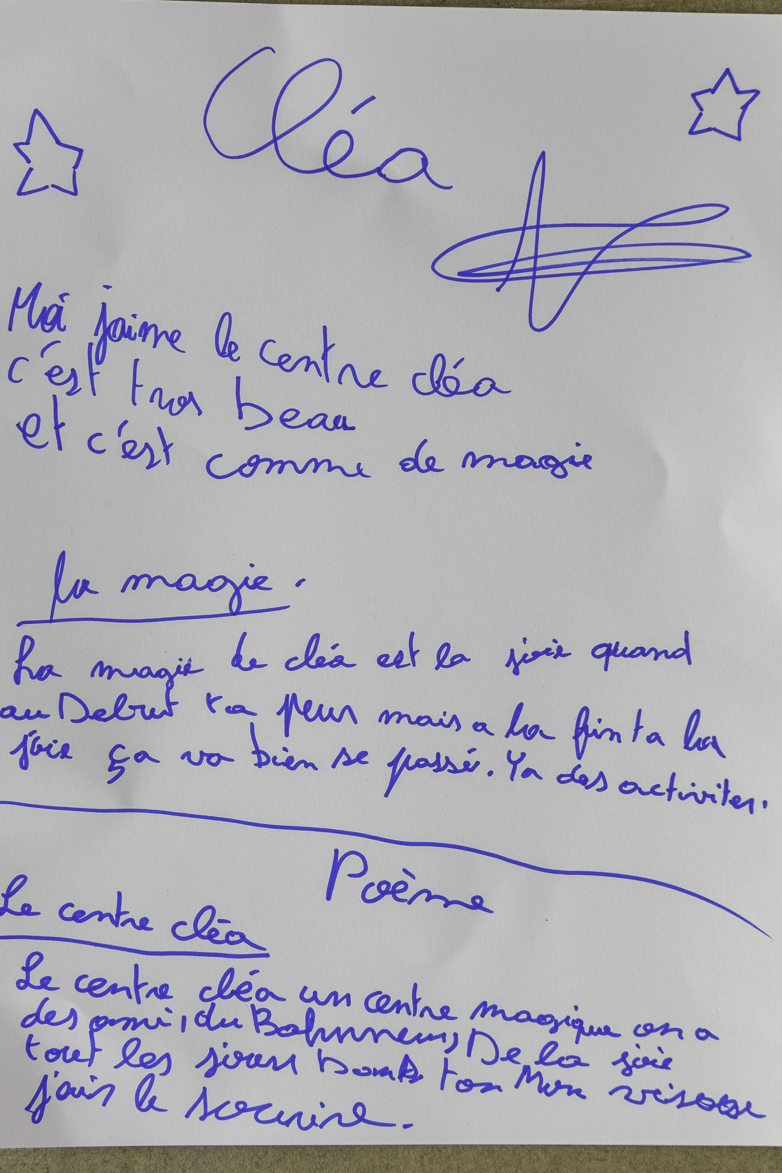 Cléa
Moi j'aime le centre cléa
c'est tros beau
et c'est comme de magie
la magie.
La magie de cléa est la joie quand
au Debut ta peur mais a la fin ta la
joie ça va bien se passé. Ya des activites.
Poème
Le centre cléa
Le centre cléa un centre magique on a
des ami, du Bohnneur, De la joie
tout les jours
j'ais le sourire.